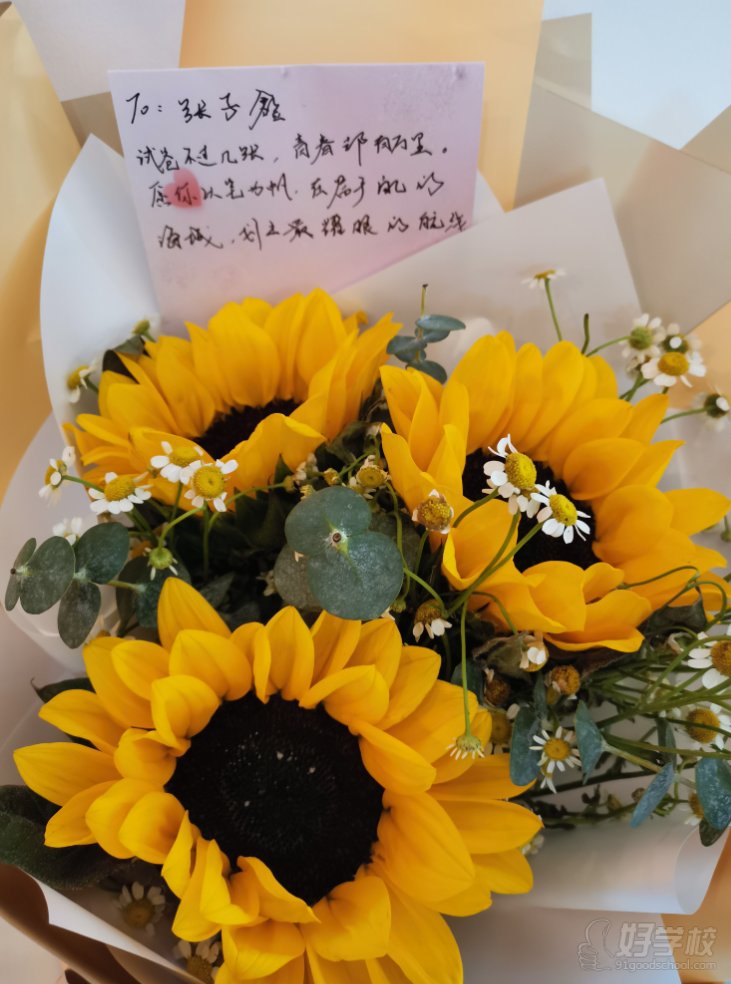 To: 张子
试卷不过几张，青春却有万里。
愿你以笔为帆，在属于你的
海域，划出最耀眼的航线
好学校
91goodschool.com